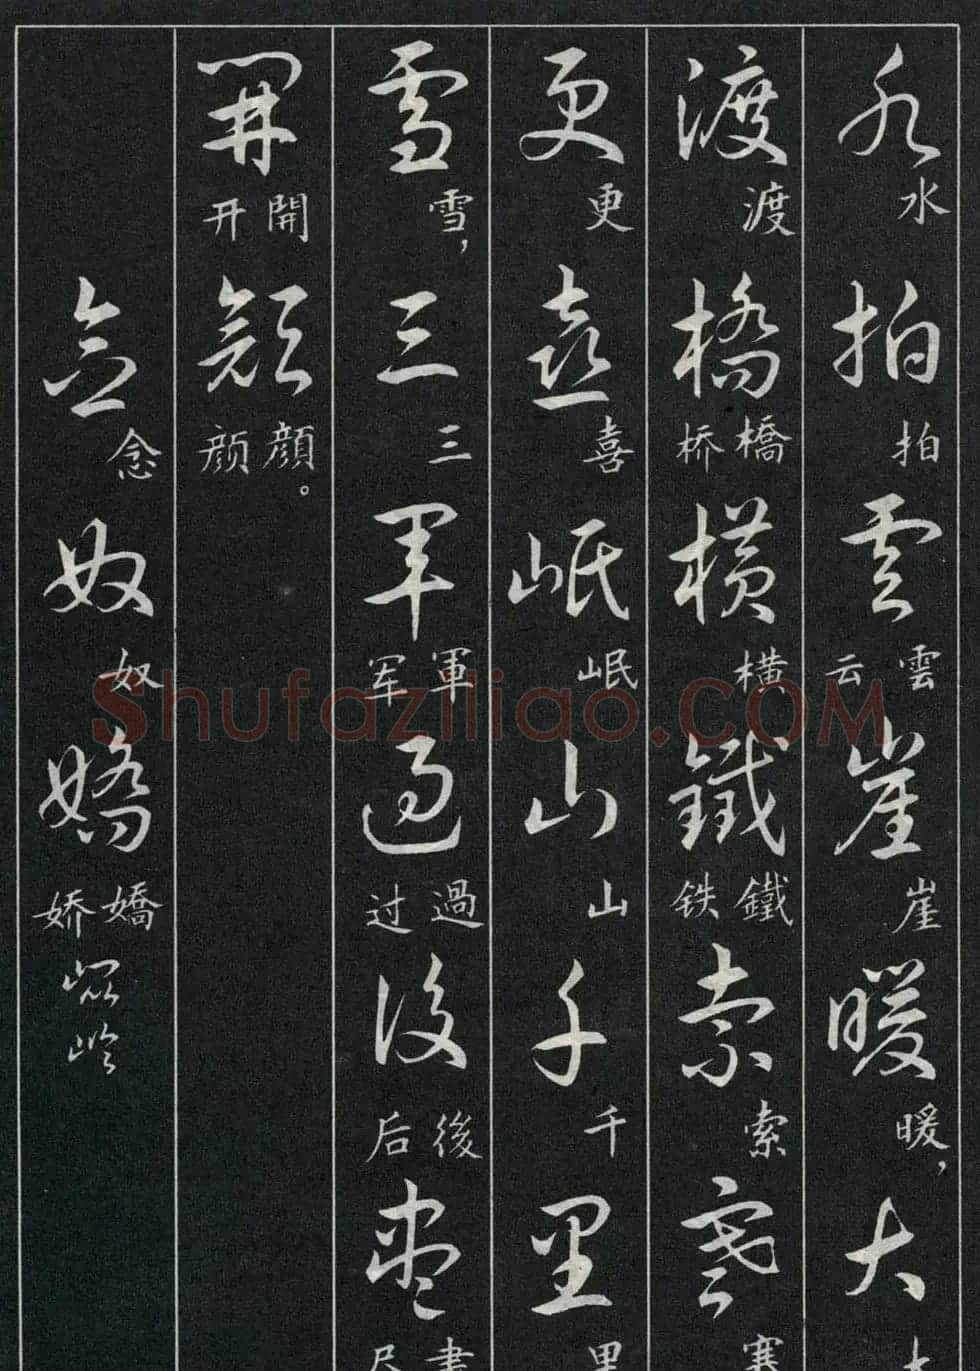 水水拍拍雲雲云崖崖暖暖，大
渡渡橋橋桥横横鐵鐵铁索索寒寒
更更喜喜岷岷山山千千里里
雪雪，三三軍軍军過過过後後后盡
開開开顔顔颜。
念念奴奴嬌嬌娇崑崙
Shufaziliao.COM